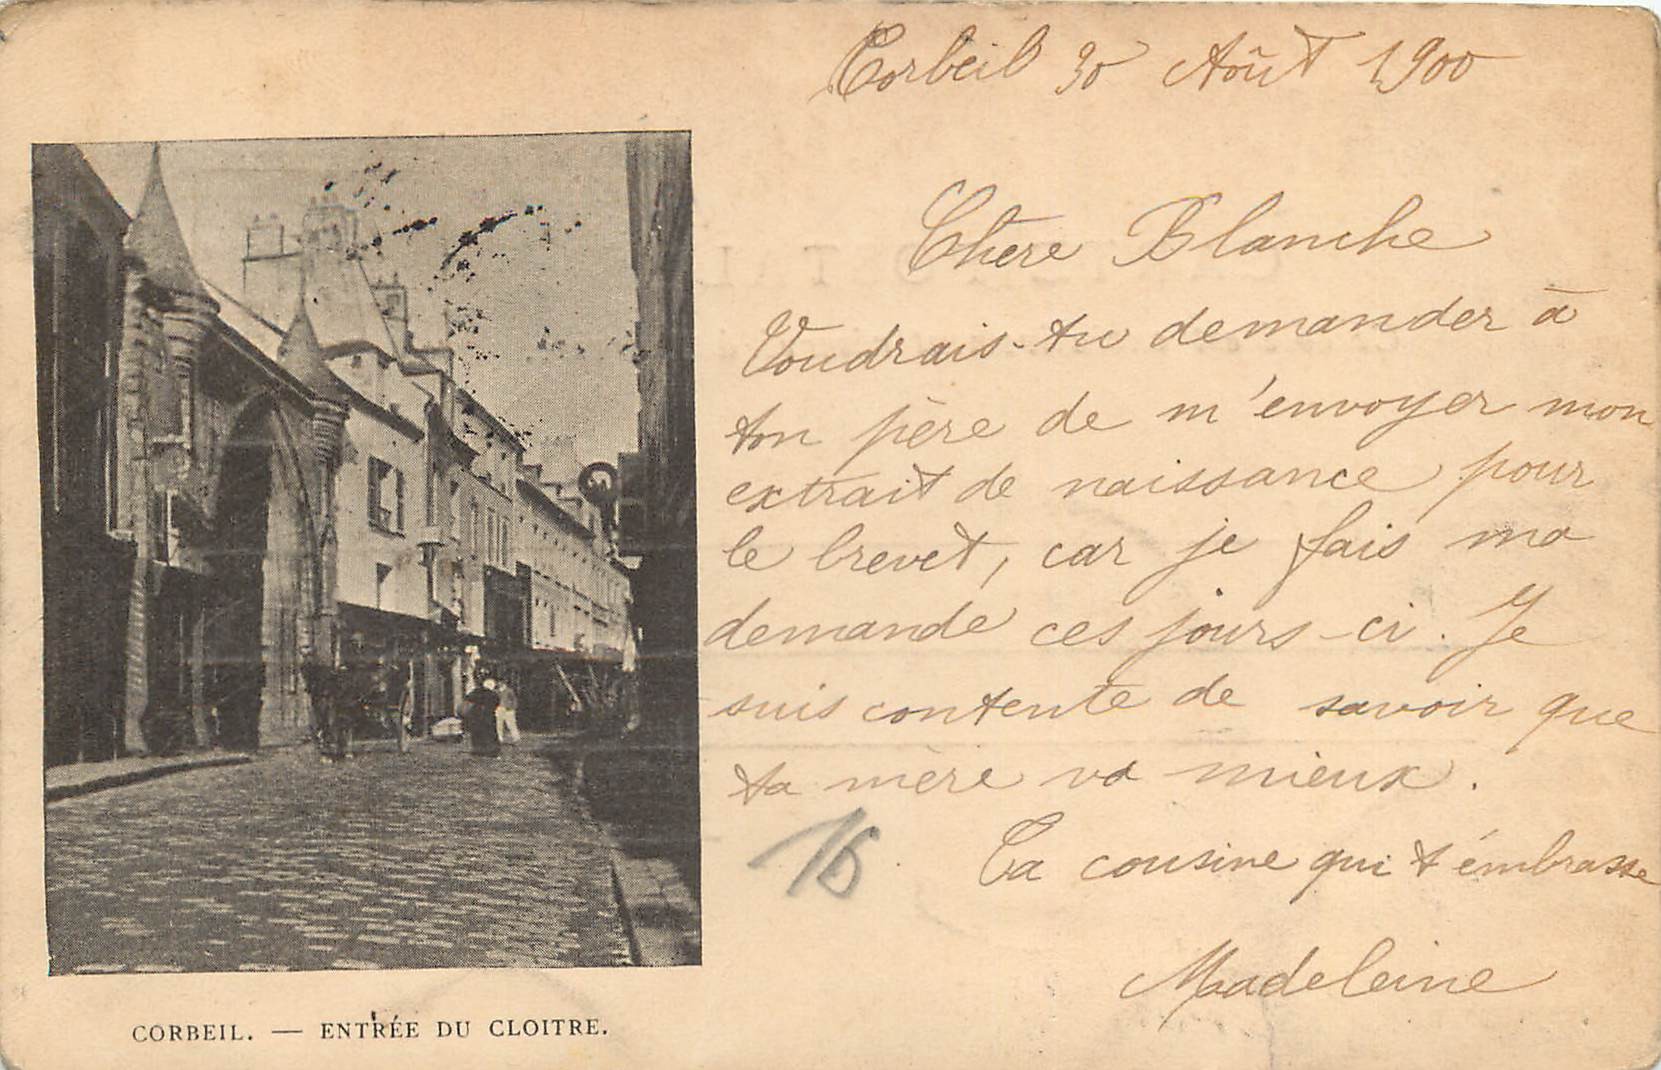 Corbeil 30 Août 1900
Chère Blanche
Voudrais-tu demander à
ton père de m'envoyer mon
extrait de naissance pour
le brevet, car je fais ma
demande ces jours-ci. Je
suis contente de savoir que
ta mère va mieux.
Ta cousine qui t'émbrasse
Madeleine
16
CORBEIL. — ENTRÉE DU CLOITRE.